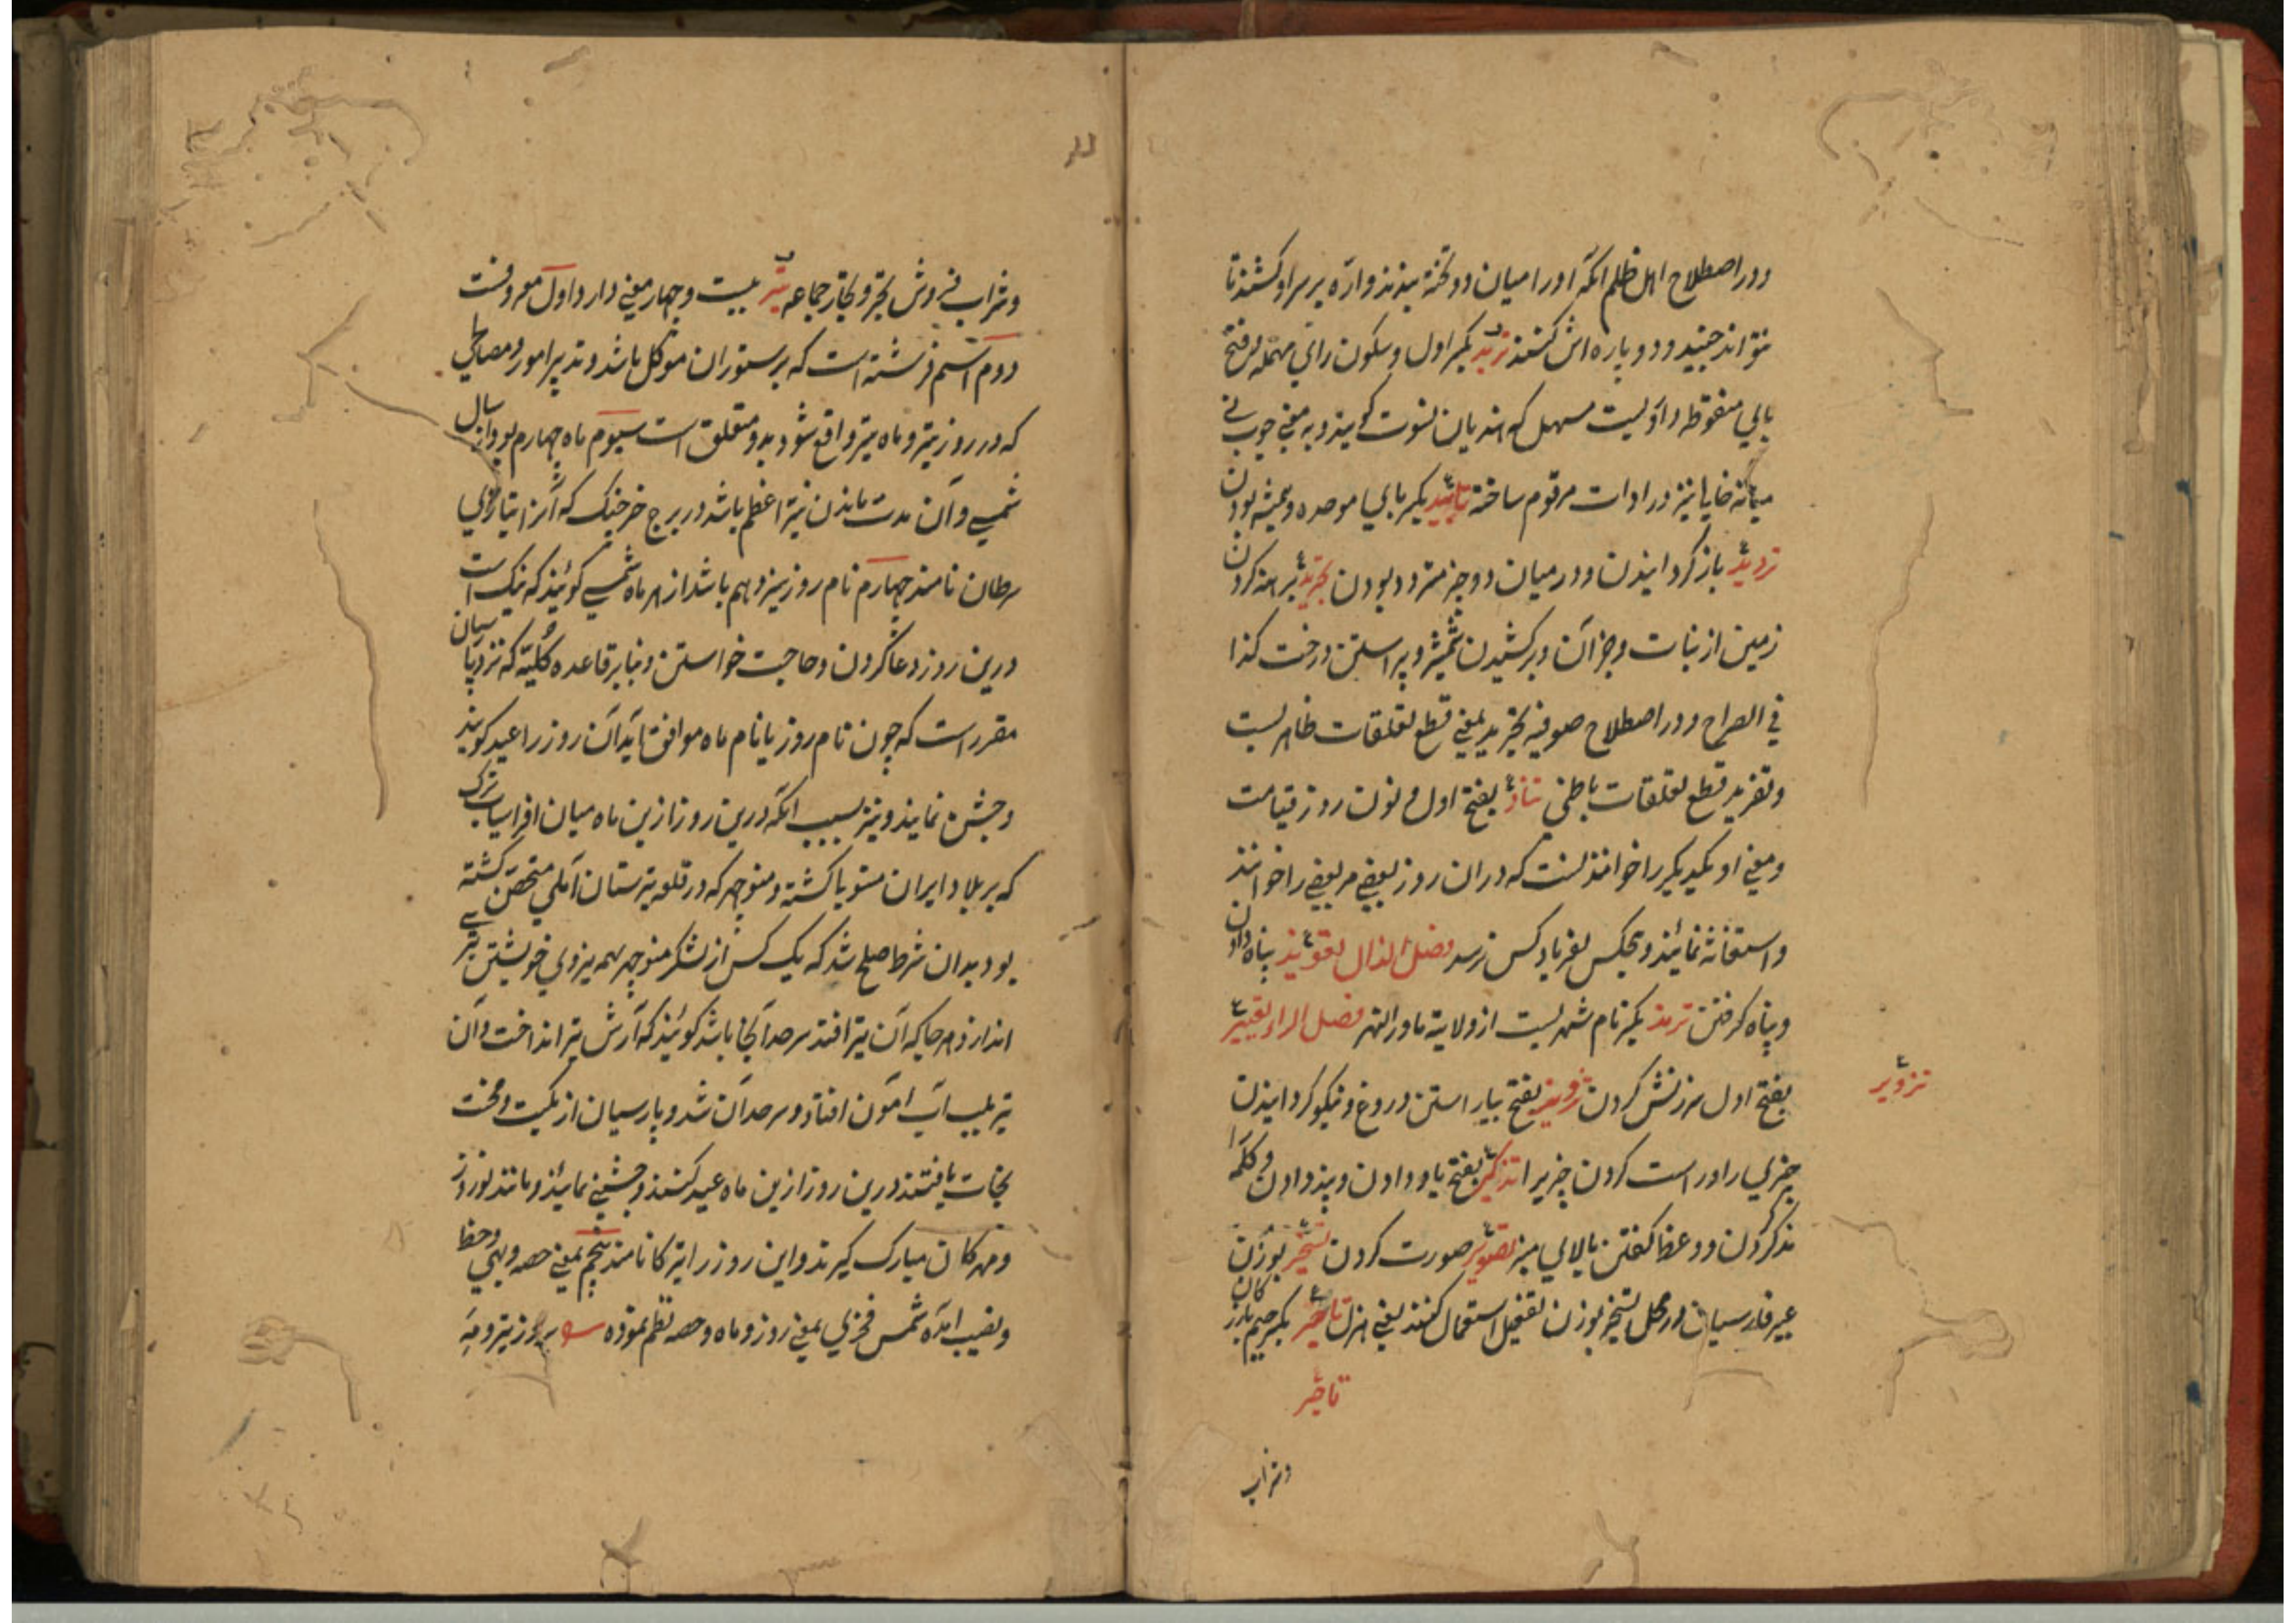 ودر اصطلاح اهل ظلم آنکه اورا میان دو تخته بندند و ارّه بر سر او کشند تا
نتواند جنبید و دوپاره اش کنند تربد بکسر اول و سکون رای مهمله و فتح
بای منقوطه داروئیست مسهل که هندیان نسوت گویند و به معنی چوب نی
میانه خالیا نیز در ادات مرقوم ساخته تابید بکسر بای موحده همیشه بودن
تردید باز گردانیدن و در میان دو چیز متردد بودن تجرید برهنه کردن
زمین از نبات و جز آن و برکشیدن شمشیر و پیراستن درخت کذا
فی الصراح و در اصطلاح صوفیه تجرید بمعنی قطع تعلقات ظاهریست
و تفرید قطع تعلقات باطنی تناد بفتح اول و نون روز قیامت
و معنی او یکدیگر را خواندنست که دران روز بعضی مر بعضی را خوانند
و استغاثه نمائند و هیچکس بفریاد کس نرسد فصل الذال تعویذ پناه دادن
و پناه گرفتن ترمذ بکسر نام شهریست از ولایة ماورالنهر فصل الراء تعییر
بفتح اول سرزنش کردن تزویر بفتح بیاراستن دروغ و نیکو گردانیدن
تزویر
چیزی را و راست کردن چیزیرا تذکیر بفتح یاد دادن و پند دادن و کلمه را
مذکر کردن و وعظ گفتن بالای منبر تصویر صورت کردن تسخر بوزن
عبیر فارسیان در محل تسخیر بوزن تفعیل استعمال کنند یعنی هزل تاجر بکسر جیم بازرگان
تاجر
وشراب
وشراب فروش تجر و تجار جماعه تیر بیست و چهار معنی دارد اول معروفست
دوم اسم فرشته است که بر ستوران موکل باشد و تدبیر امور و مصالحی
که در روز تیر و ماه تیر واقع شود بدو متعلق است سیوم ماه چهارم بود از سال
شمسی و آن مدت ماندن نیّر اعظم باشد در برج خرچنگ که آنرا بتازی
سرطان نامند چهارم نام روز سیزدهم باشد از هر ماه شمسی گویند که نیک است
درین روز دعا کردن و حاجت خواستن و بنابر قاعده کلیّه که نزد پارسیان
مقرر است که چون نام روز با نام ماه موافق آید آن روز را عید گویند
و جشن نمایند و نیز بسبب آنکه درین روز ازین ماه میان افراسیاب ترک
که بر بلاد ایران مستولی گشته و منوچهر که در قلعه تبرستان آملی متحصّن گشته
بود بدان شرط صلح شد که یک کس از لشکر منوچهر بهمه نیروی خویشتن تیری
اندازد هر جا که آن تیر افتد سرحد آنجا باشد گویند که آرش تیر انداخت و آن
تیر بلب آب آمون افتاد و سرحد آن شد و پارسیان از نکبت و محنت
نجات یافتند درین روز ازین ماه عید کنند و جشنی نمایند و مانند نوروز
و مهرگان مبارک گیرند و این روز را تیرگان نامند پنجم بمعنی حصه و بهی و حظ
و نصیب آمده شمس فخری بمعنی روز و ماه و حصه نظم نموده بروز تیر و مه